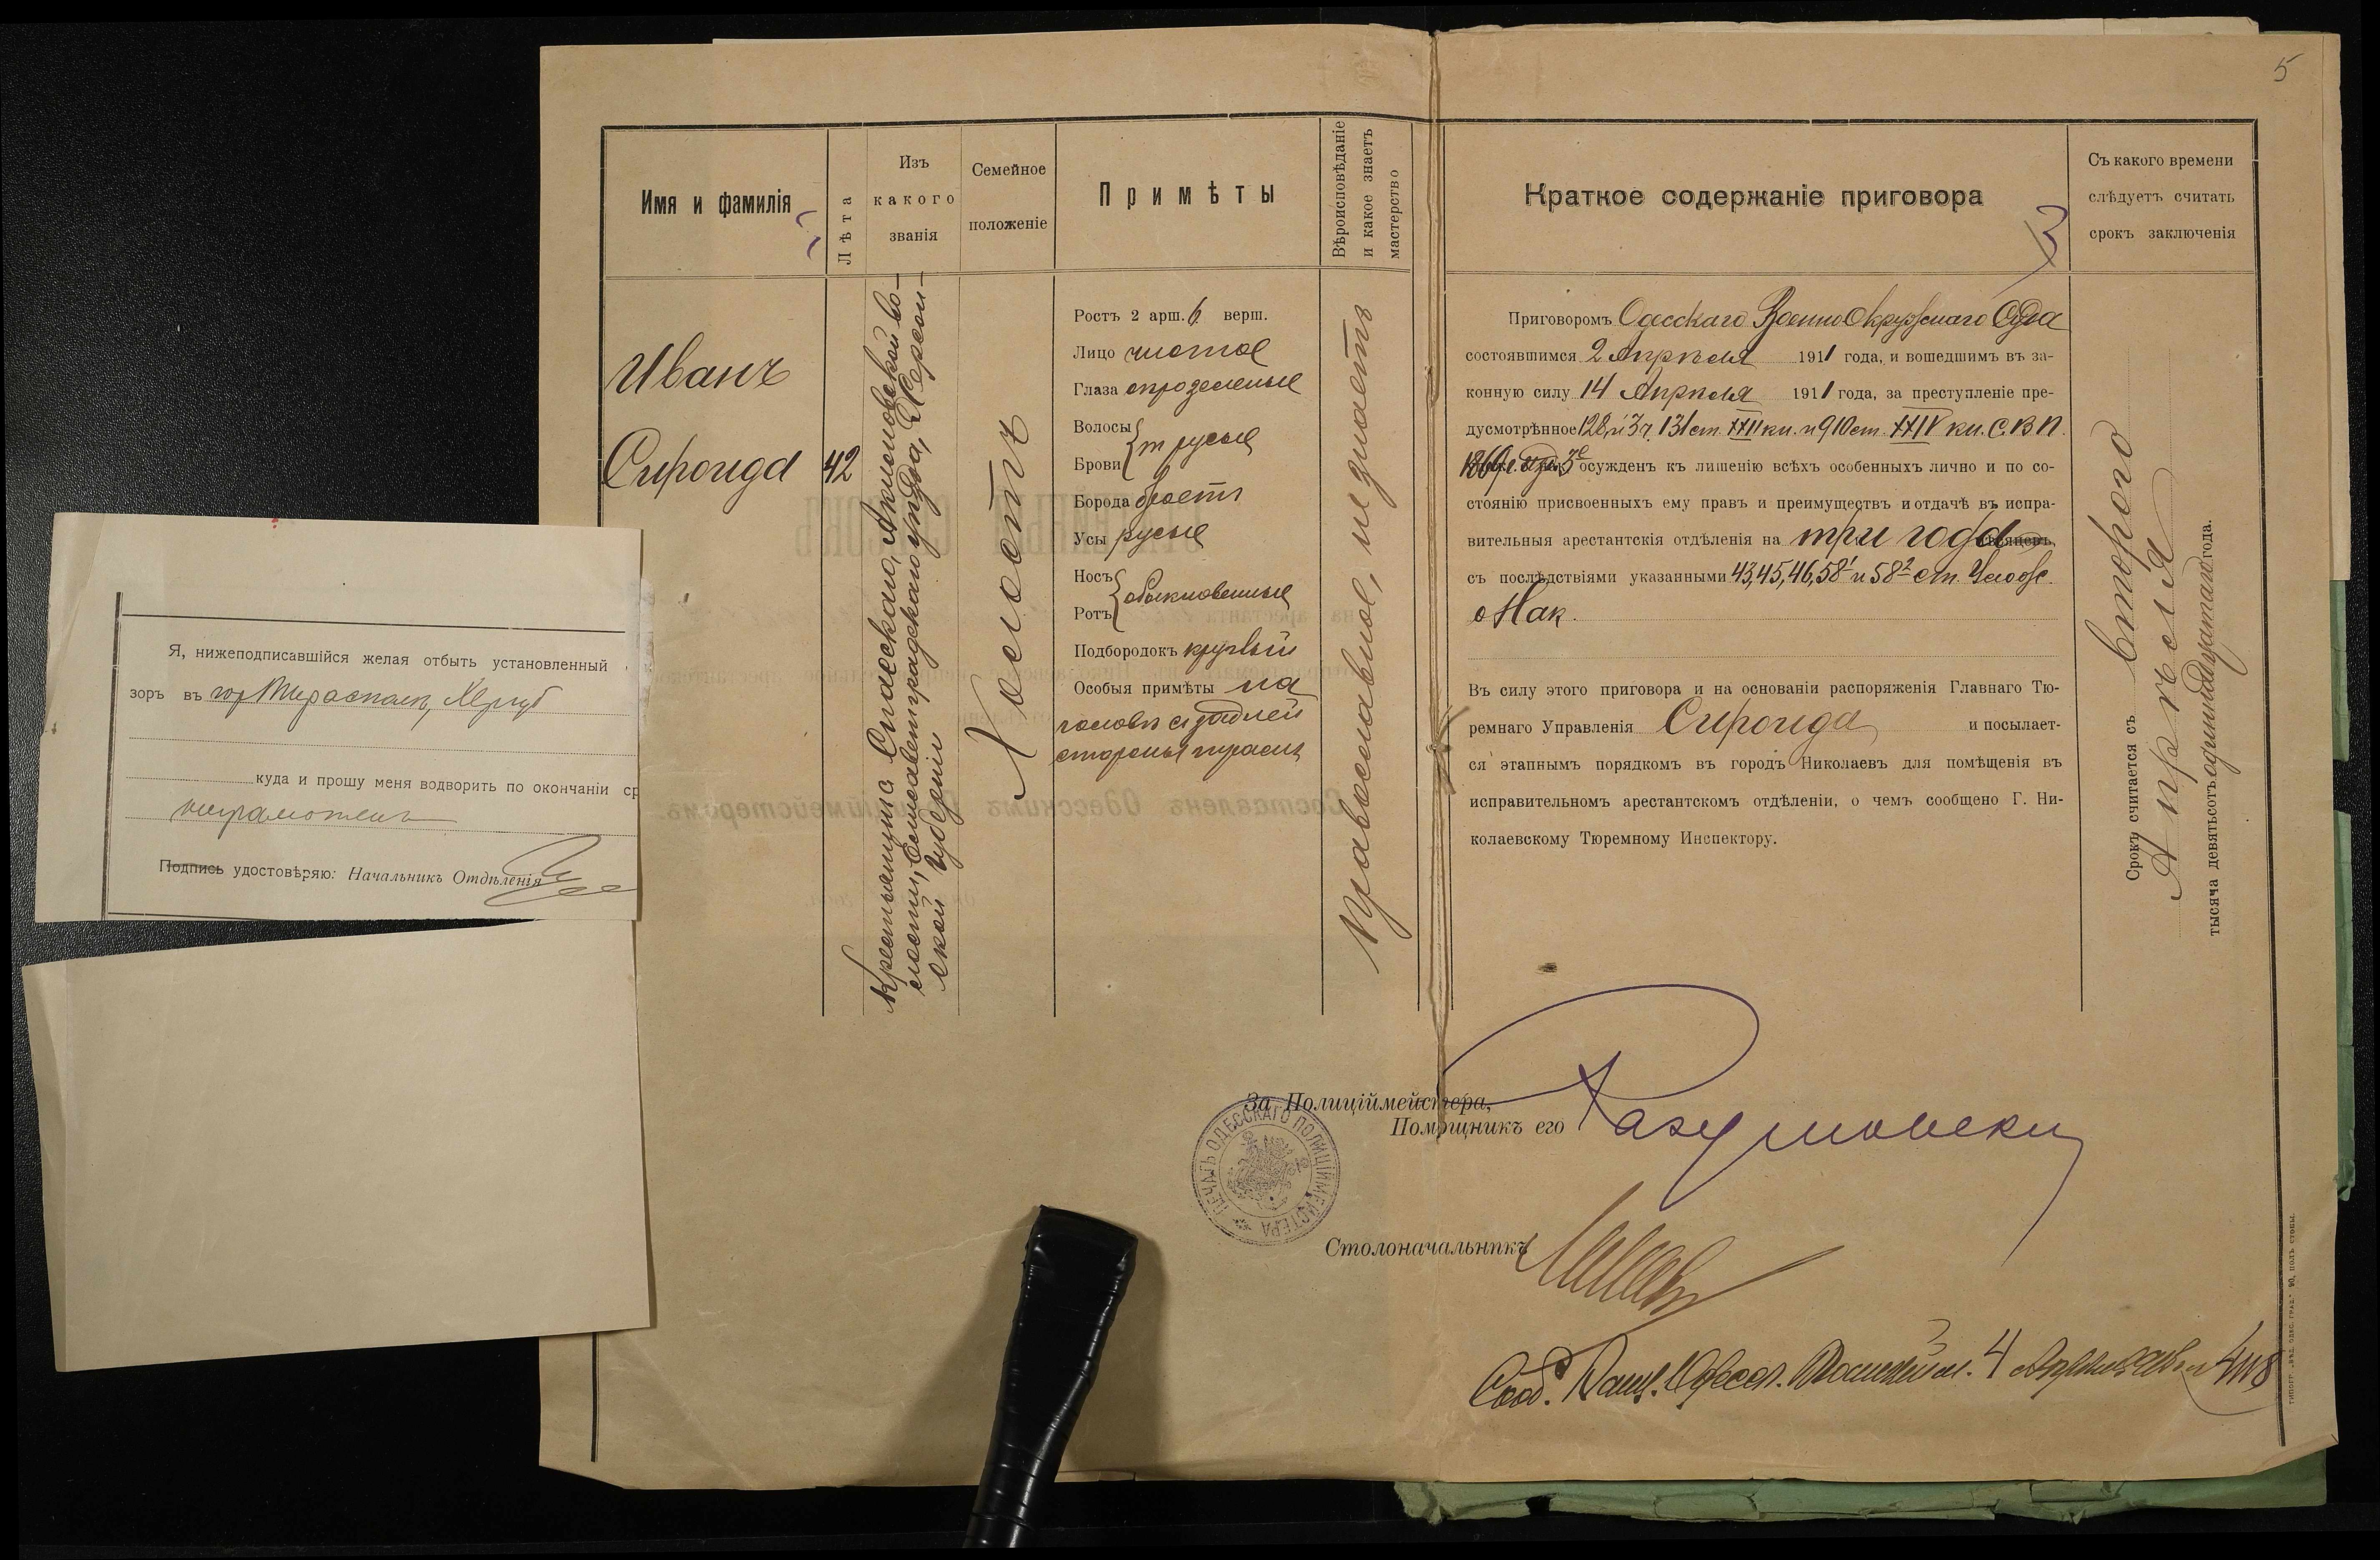 5
Имя и фамилія
Лѣта
Изъ
какого
званія
Семейное
положеніе
Примѣты
Вѣроисповѣданіе
и какое знаетъ
мастерство
Краткое содержаніе приговора
Съ какого времени
слѣдуетъ считать
срокъ заключенія
Иванъ
Сиронда
42
Крестьянинъ Спасскаго, Акимовской во-
лости, Елисаветградскаго уѣзда, Херсон-
ской губерніи
Холостъ
Ростъ 2 арш. 6 верш.
Лицо чистое
Глаза сѣрозеленые
Волосы
т русые
Брови
Борода брѣетъ
Усы русые
Носъ
обыкновенные
Ротъ
Подбородокъ круглый
Особыя примѣты на
головѣ съ задней
стороны шрамъ
Православное, не знаетъ
Приговоромъ Одесскаго Военно Окружнаго Суда
состоявшимся 2 Апрѣля 1911 года, и вошедшимъ въ за-
конную силу 14 Апрѣля 1911 года, за преступленіе пре-
дусмотрѣнное 128, и 3 ч. 131 ст. XXII кн. и 910 ст. XXIV кн. С.В.П.
1869 г. изд. 3е осужденъ къ лишенію всѣхъ особенныхъ лично и по со-
стоянію присвоенныхъ ему правъ и преимуществъ и отдачѣ въ испра-
вительныя арестантскія отдѣленія на три года мѣсяцевъ,
съ послѣдствіями указанными 43, 45, 46, 58¹ и 58² ст. Улож.
о Нак.
Въ силу этого приговора и на основаніи распоряженія Главнаго Тю-
ремнаго Управленія Сиронда и посылает-
ся этапнымъ порядкомъ въ городъ Николаевъ для помѣщенія въ
исправительномъ арестантскомъ отдѣленіи, о чемъ сообщено Г. Ни-
колаевскому Тюремному Инспектору.
Срокъ считается съ второго
Апрѣля
тысяча девятьсотъ одиннадцатаго года.
Я, нижеподписавшійся желая отбыть установленный
зоръ въ гор Тирасполь, Хер губ
куда и прошу меня водворить по окончаніи ср
неграмотенъ
Подпись удостовѣряю: Начальникъ Отдѣленія
За Полиціймейстера,
Помощникъ его
ПЕЧАТЬ ОДЕССКАГО ПОЛИЦІЙМЕЙСТЕРА
Столоначальникъ